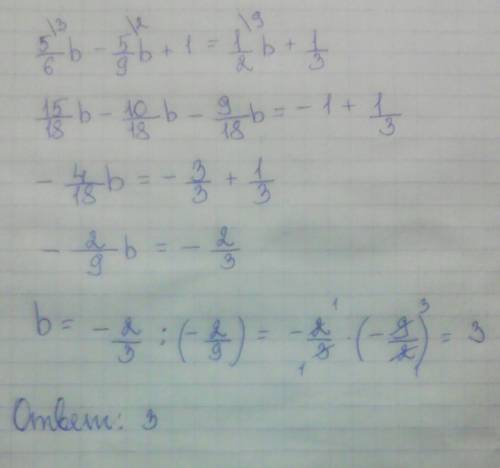 5\3/6 b - 5\2/9 b + 1 = 1\9/2 b + 1/3
15/18 b - 10/18 b - 9/18 b = -1 + 1/3
- 4/18 b = - 3/3 + 1/3
- 2/9 b = - 2/3
b = - 2/3 : (- 2/9) = - 2 1/3 1 · (- 9 3/2 1) = 3
Ответ: 3